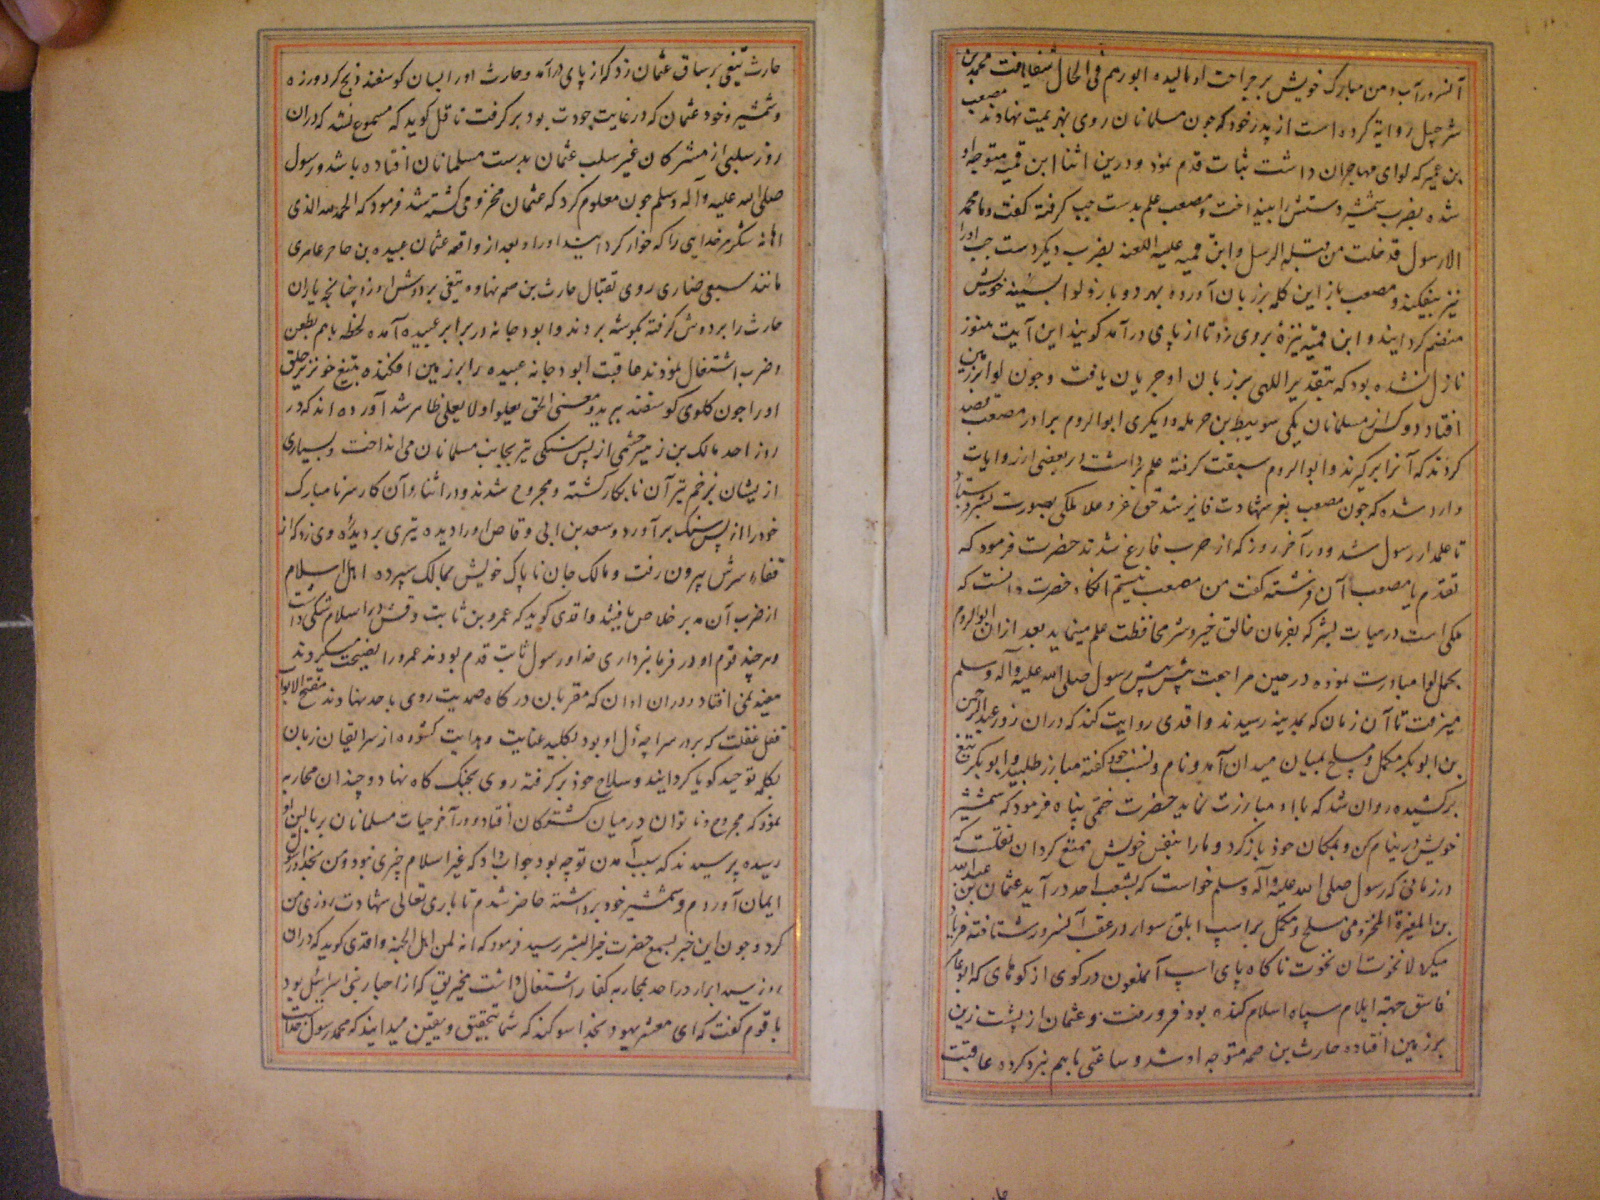 آنسرور آب دهن مبارک خویش بر جراحت او مالیده ابورهم فی الحال شفا یافت محمد بن
شرحبیل روایة کرده است از پدر خود که چون مسلمانان روی بهزیمت نهادند مصعب
بن عمیر که لوای مهاجران داشت ثبات قدم نمود و درین اثنا ابن قمیه متوجه او
شده بضرب شمشیر دستش را بینداخت و مصعب علم بدست چپ گرفته گفت وما محمد
الا رسول قد خلت من قبله الرسل و ابن قمیه علیه اللعنه بضرب دیگر دست چپ او را
نیز بیفکند و مصعب باز این کلمه بر زبان آورده بهر دو بازو لوا بسینه خویش
منضم کردانید و ابن قمیه نیزۀ بر وی زد تا از پای درآمد کویند این آیت هنوز
نازل نشده بود که بتقدیر اللهی بر زبان او جریان یافت و چون لوا بر زمین
افتاد دو کس از مسلمانان یکی سویبط بن حرمله و دیگری ابو الروم برادر مصعب قصد
کردند که آنرا برگیرند و ابو الروم سبقت گرفته علم برداشت در بعضی از روایات
وارد شده که چون مصعب بعز شهادت فایز شد حق عز و علا ملکی بصورت بشر فرستاد
تا علمدار رسول شد و در آخر روز که از حرب فارغ شدند حضرت فرمود که
تقدم یا مصعب آن فرشته گفت من مصعب نیستم انگاه حضرت دانست که
ملکی است در هیات بشر که بفرمان خالق خیر و شر محافظت علم مینماید بعد ازان ابو الروم
بحمل لوا مبادرت نموده در حین مراجعت پیش پیش رسول صلی الله علیه وآله وسلم
میرفت تا آن زمان که بمدینه رسیدند واقدی روایت کند که دران روز عبد الرحمن
بن ابو بکر مکمل و مسلح بمیان میدان آمد و نام و نسب خود گفته مبارز طلبید و ابو بکر تیغ
برکشیده روان شد که با او مبارزت نماید حضرت ختمی پناه فرمود که شمشیر
خویش در نیام کن و بمکان خود بازکرد و ما را بنفس خویش ممتع کردان نقلست که
در زمانی که رسول صلی الله علیه و آله وسلم خواست که بشعب احد در آید عثمان بن عبد الله
بن المغیرة المخزومی مسلح و مکمل بر اسپ ابلق سوار در عقب آنسرور شتافته فریاد
میکرد لا نجوت ان نجوت ناکاه پای اسپ آن ملعون در کوی از کوهای که ابو عامر
فاسق جهة ایلام سپاه اسلام کنده بود فرو رفت و عثمان از پشت زین
بر زمین افتاد و حارث بن صمه متوجه او شد و ساعتی باهم نبرد کرده عاقبت
حارث تیغی بر ساق عثمان زد که از پای درآمد و حارث او را بسان کوسفند ذبح کرد و زره
و شمشیر و خود عثمان که در غایت جودت بود بر گرفت ناقل کوید که مسموع نشد که دران
روز سلبی از مشرکان غیر سلب عثمان بدست مسلمانان افتاده باشد و رسول
صلی الله علیه وآله وسلم چون معلوم کرد که عثمان مخزومی کشته شد فرمود که الحمد لله الذی
اهانه شکر مر خدایی را که خوار کردانید او را و بعد از واقعه عثمان عبیده بن حاجز عامری
مانند سبعی ضاری روی بقتال حارث بن صمه نهاده تیغی بر دوش او زد چنانچه یاران
حارث را بر دوش گرفته بکوشه بردند و ابو دجانه در برابر عبیده آمده لحظه باهم بطعن
و ضرب اشتغال نمودند عاقبت ابو دجانه عبیده را بر زمین افکنده بتیغ خونریز حلق
او را چون کلوی کوسفند ببرید و معنی الحق یعلو و لا یعلی ظاهر شد آورده اند که در
روز احد مالک بن زهیر جشمی از پس سنکی تیر بجانب مسلمانان می انداخت و بسیاری
از یشان بزخم تیر آن نابکار کشته و مجروح شدند و در اثناء آن کار سر نامبارک
خود را از پس سنک برآورد و سعد بن ابی وقاص او را دیده تیری بر دیدۀ وی زد که از
قفاء سرش بیرون رفت و مالک جان ناپاک خویش بمالک سپرده اهل اسلام
از ضرب آن مدبر خلاص یافتند واقدی کوید که عمرو بن ثابت وقش در اسلام شکی داشت
و هر چند قوم او در فرمانبرداری خدا و رسول ثابت قدم بودند عمرو را نصیحت میکردند
مفید نمی افتاد و دران اوان که مقربان درکاه صمدیت روی باحد نهادند مفتح الابواب
قفل غفلت که بر در سراچه دل او بود بکلید عنایت و هدایت کشوده از سر ایقان زبان
بکلمه توحید کویا کردانید و سلاح خود بر گرفته روی بجنک کاه نهاد و چندان محاربه
نمود که مجروح و ناتوان در میان کشتکان افتاد و در آخر حیات مسلمانان ببالین او
رسیده پرسیدند که سبب آمدن تو چه بود جواب داد که غیر اسلام چیزی نبود و من بخدا و رسول
ایمان آوردم و شمشیر خود برداشته حاضر شدم تا باری تعالی شهادت روزی من
کرد و چون این خبر بسمع حضرت خیر البشر رسید فرمود که انه لمن اهل الجنة واقدی کوید که دران
روز که ابرار در احد بمحاربه کفار اشتغال داشت مخیریق که از احبار بنی اسرائیل بود
با قوم گفت که ای معشر یهود بخدا سوکند که شما بتحقیق و یقین میدانید که محمد رسول خداست